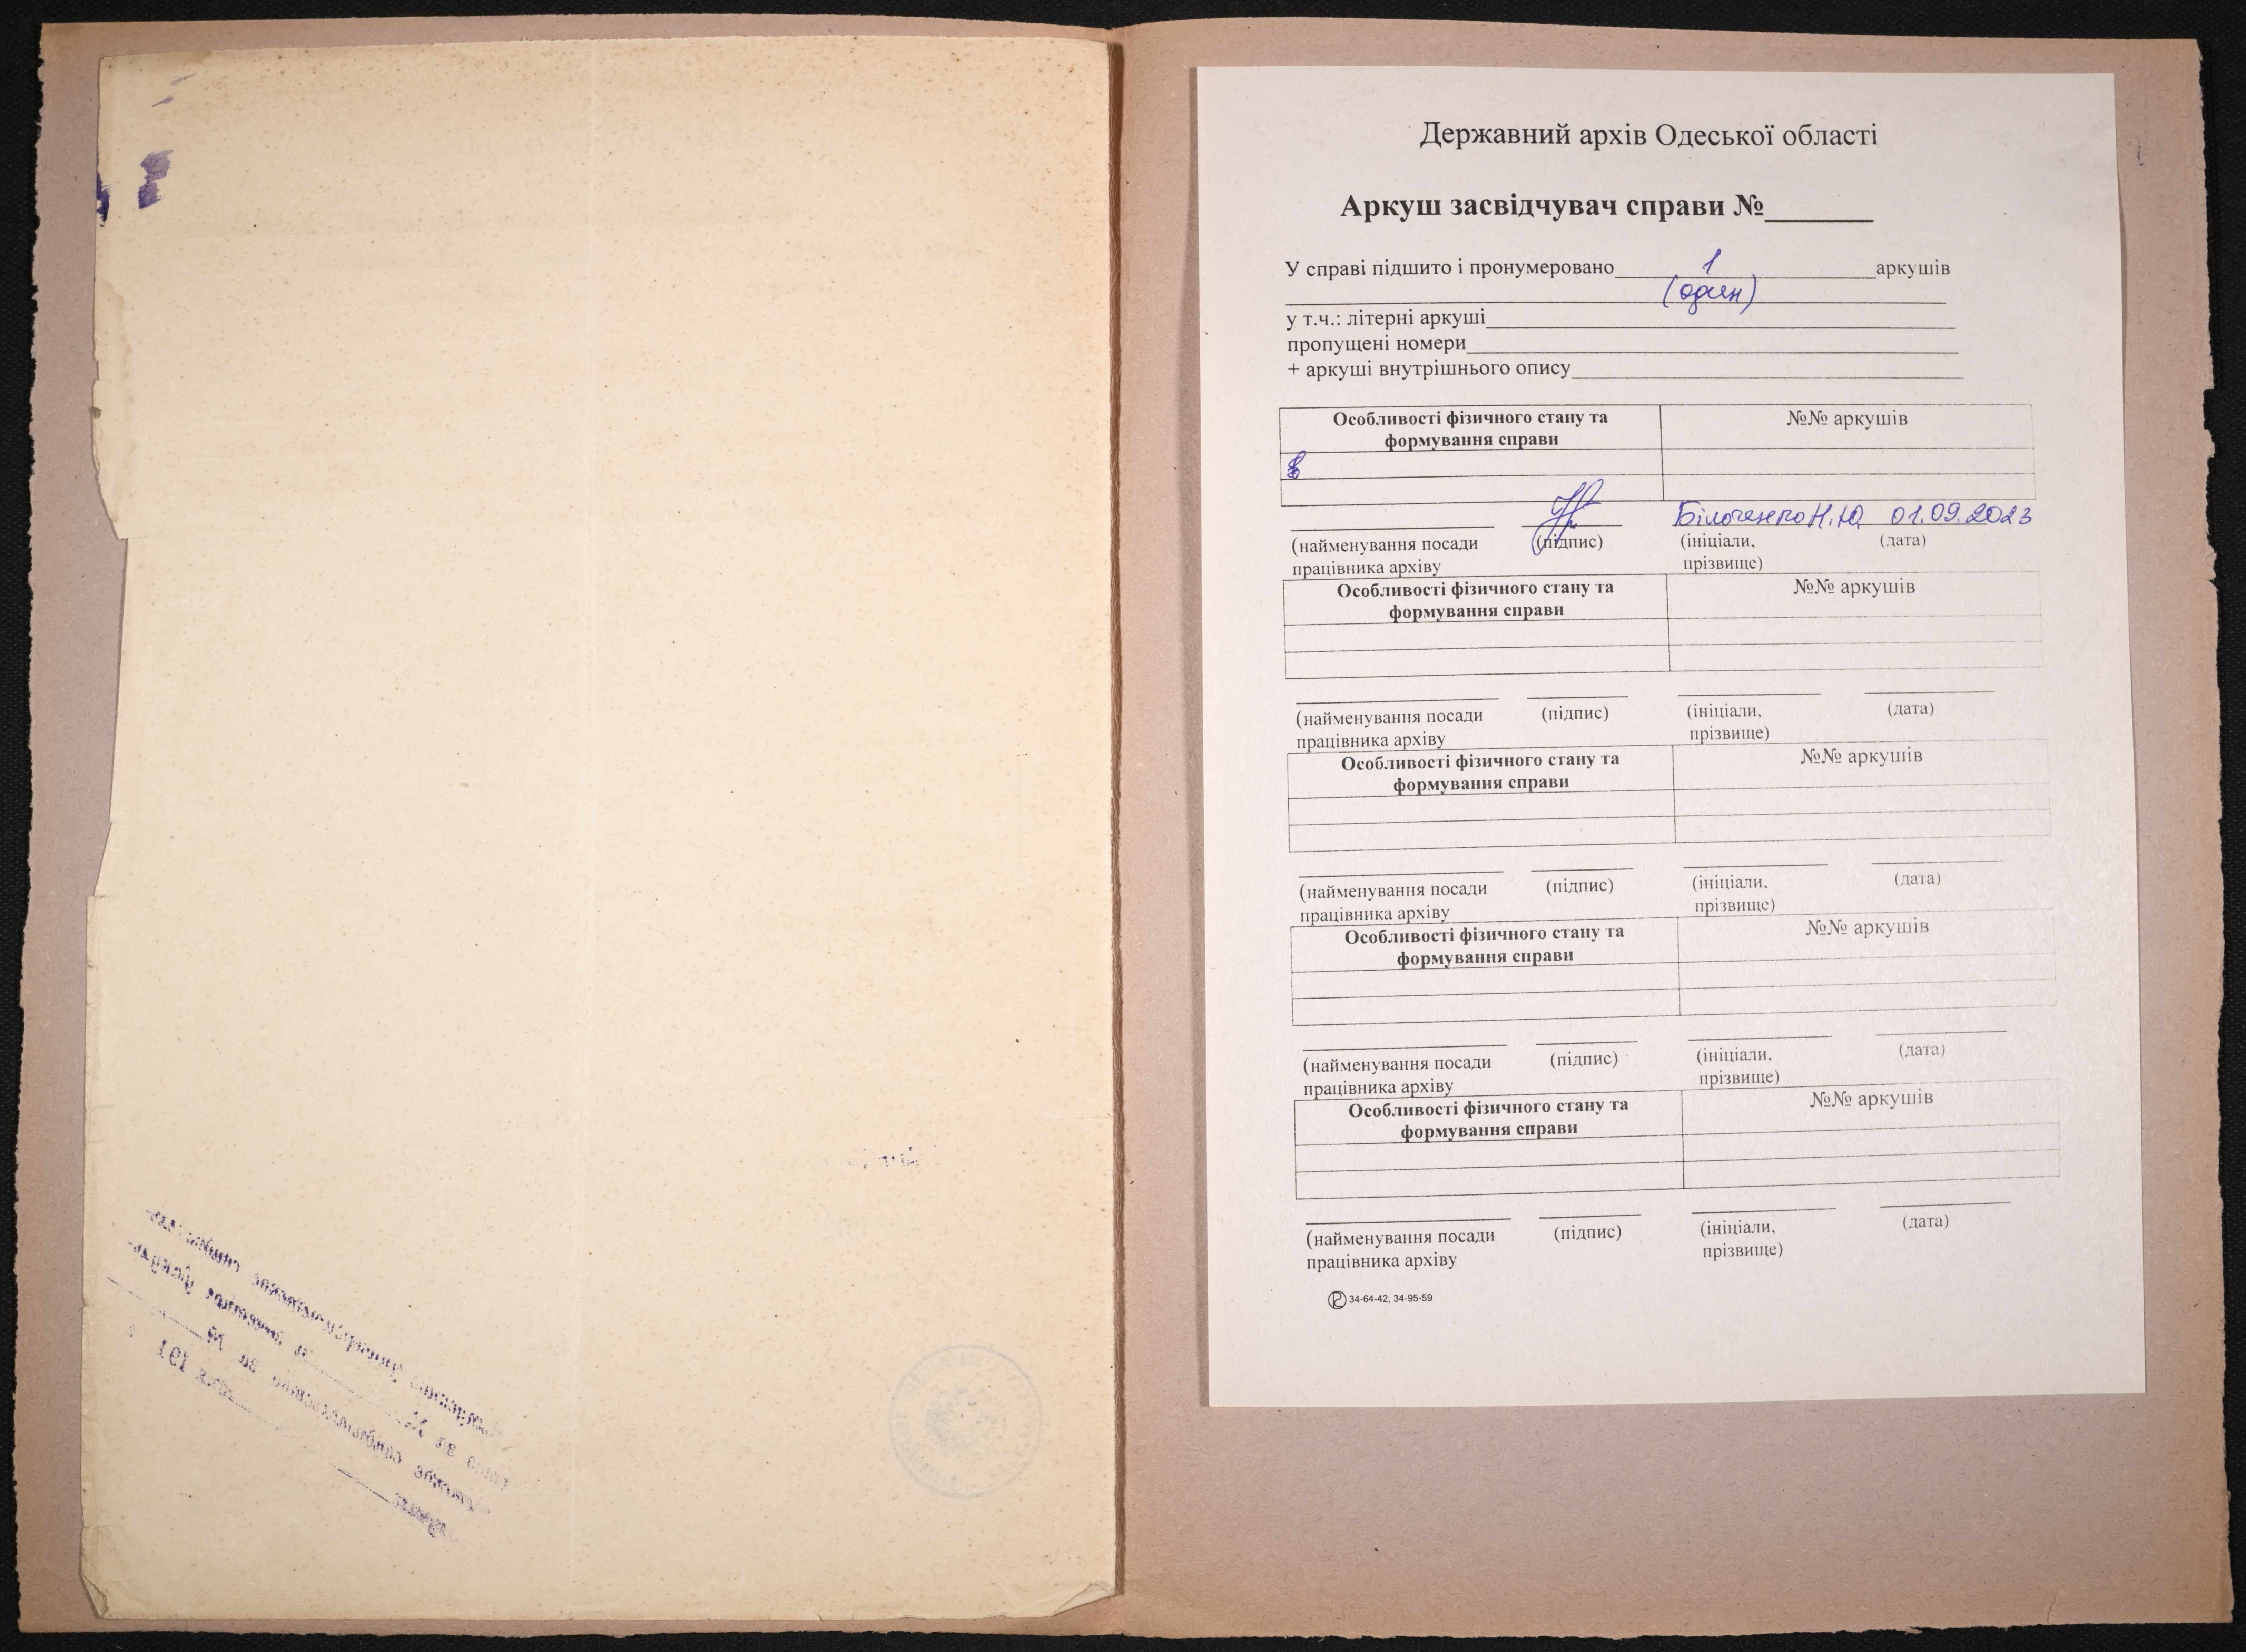 Державний архів Одеської області
Аркуш засвідчувач справи №______
У справі підшито і пронумеровано 1 аркушів
(один)
у т.ч.: літерні аркуші
пропущені номери
+ аркуші внутрішнього опису
Особливості фізичного стану та формування справи №№ аркушів
Н.Ю. 01.09.2023
(найменування посади працівника архіву (підпис) (ініціали, прізвище) (дата)
Особливості фізичного стану та формування справи №№ аркушів
(найменування посади працівника архіву (підпис) (ініціали, прізвище) (дата)
Особливості фізичного стану та формування справи №№ аркушів
(найменування посади працівника архіву (підпис) (ініціали, прізвище) (дата)
Особливості фізичного стану та формування справи №№ аркушів
(найменування посади працівника архіву (підпис) (ініціали, прізвище) (дата)
Особливості фізичного стану та формування справи №№ аркушів
(найменування посади працівника архіву (підпис) (ініціали, прізвище) (дата)
34-64-42, 34-95-59